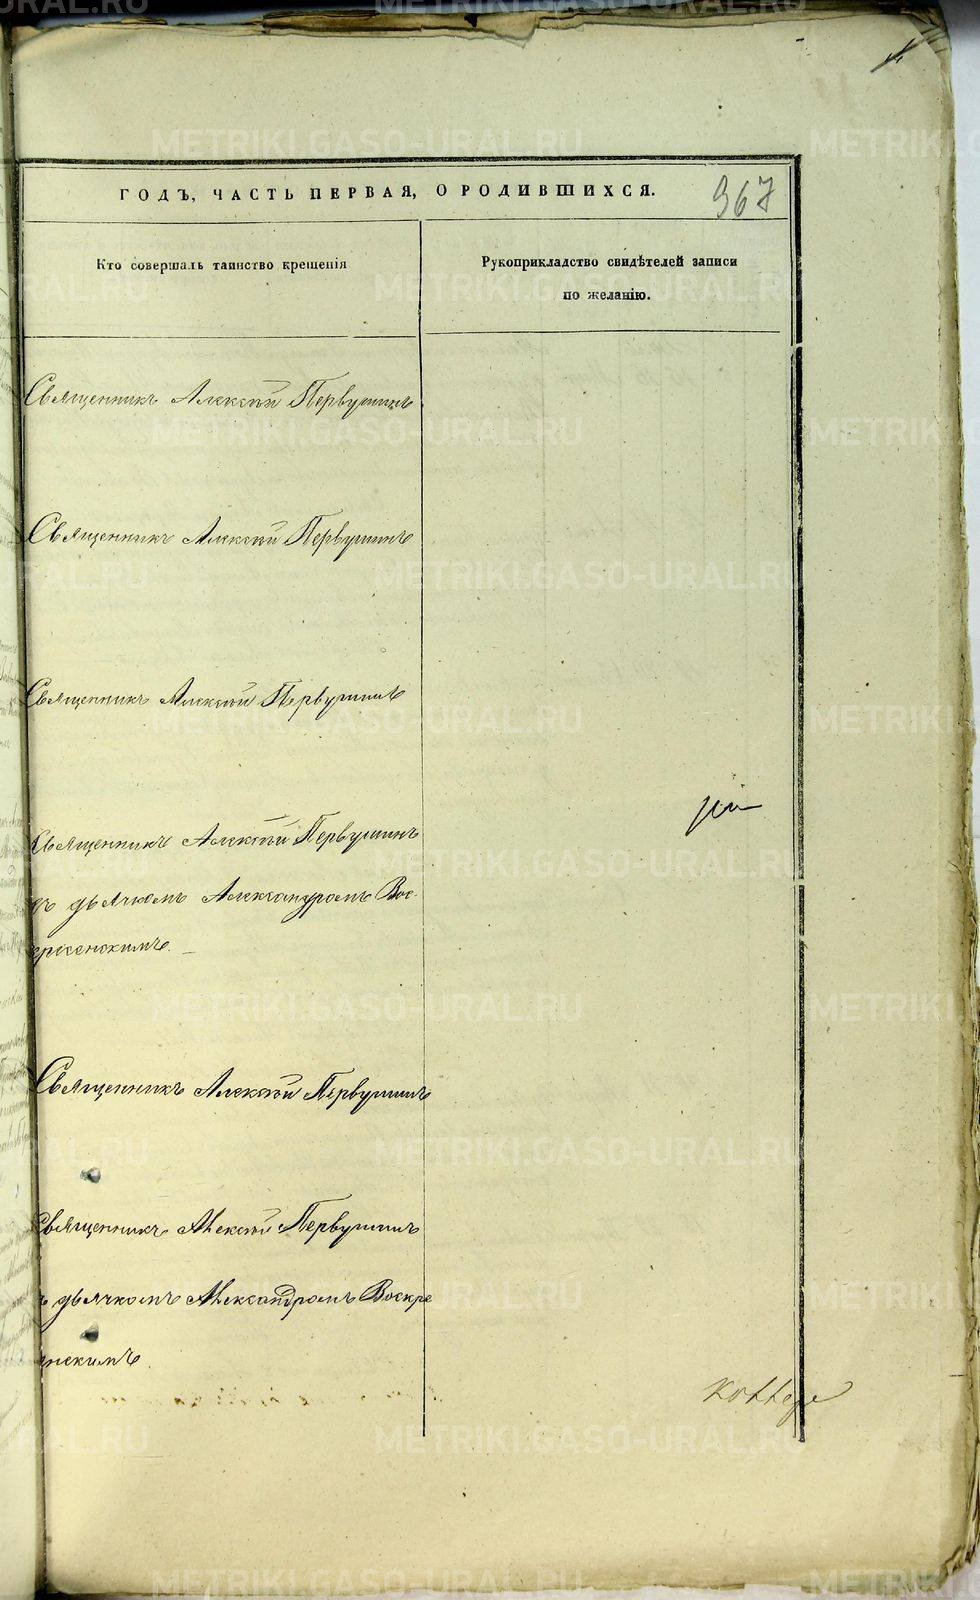 ГОДЪ, ЧАСТЬ ПЕРВАЯ, О РОДИВШИХСЯ.
367
Кто совершалъ таинство крещенія
Рукоприкладство свидѣтелей записи
по желанію.
Священникъ Алексѣй Первушинъ
Священникъ Алексѣй Первушинъ
Священникъ Алексѣй Первушинъ
Священникъ Алексѣй Первушинъ
съ дьячкомъ Александромъ Вос-
кресенскимъ.
Священникъ Алексѣй Первушинъ
Священникъ Алексѣй Первушинъ
ъ дьячкомъ Александромъ Воскре
енскимъ.
METRIKI.GASO-URAL.RU